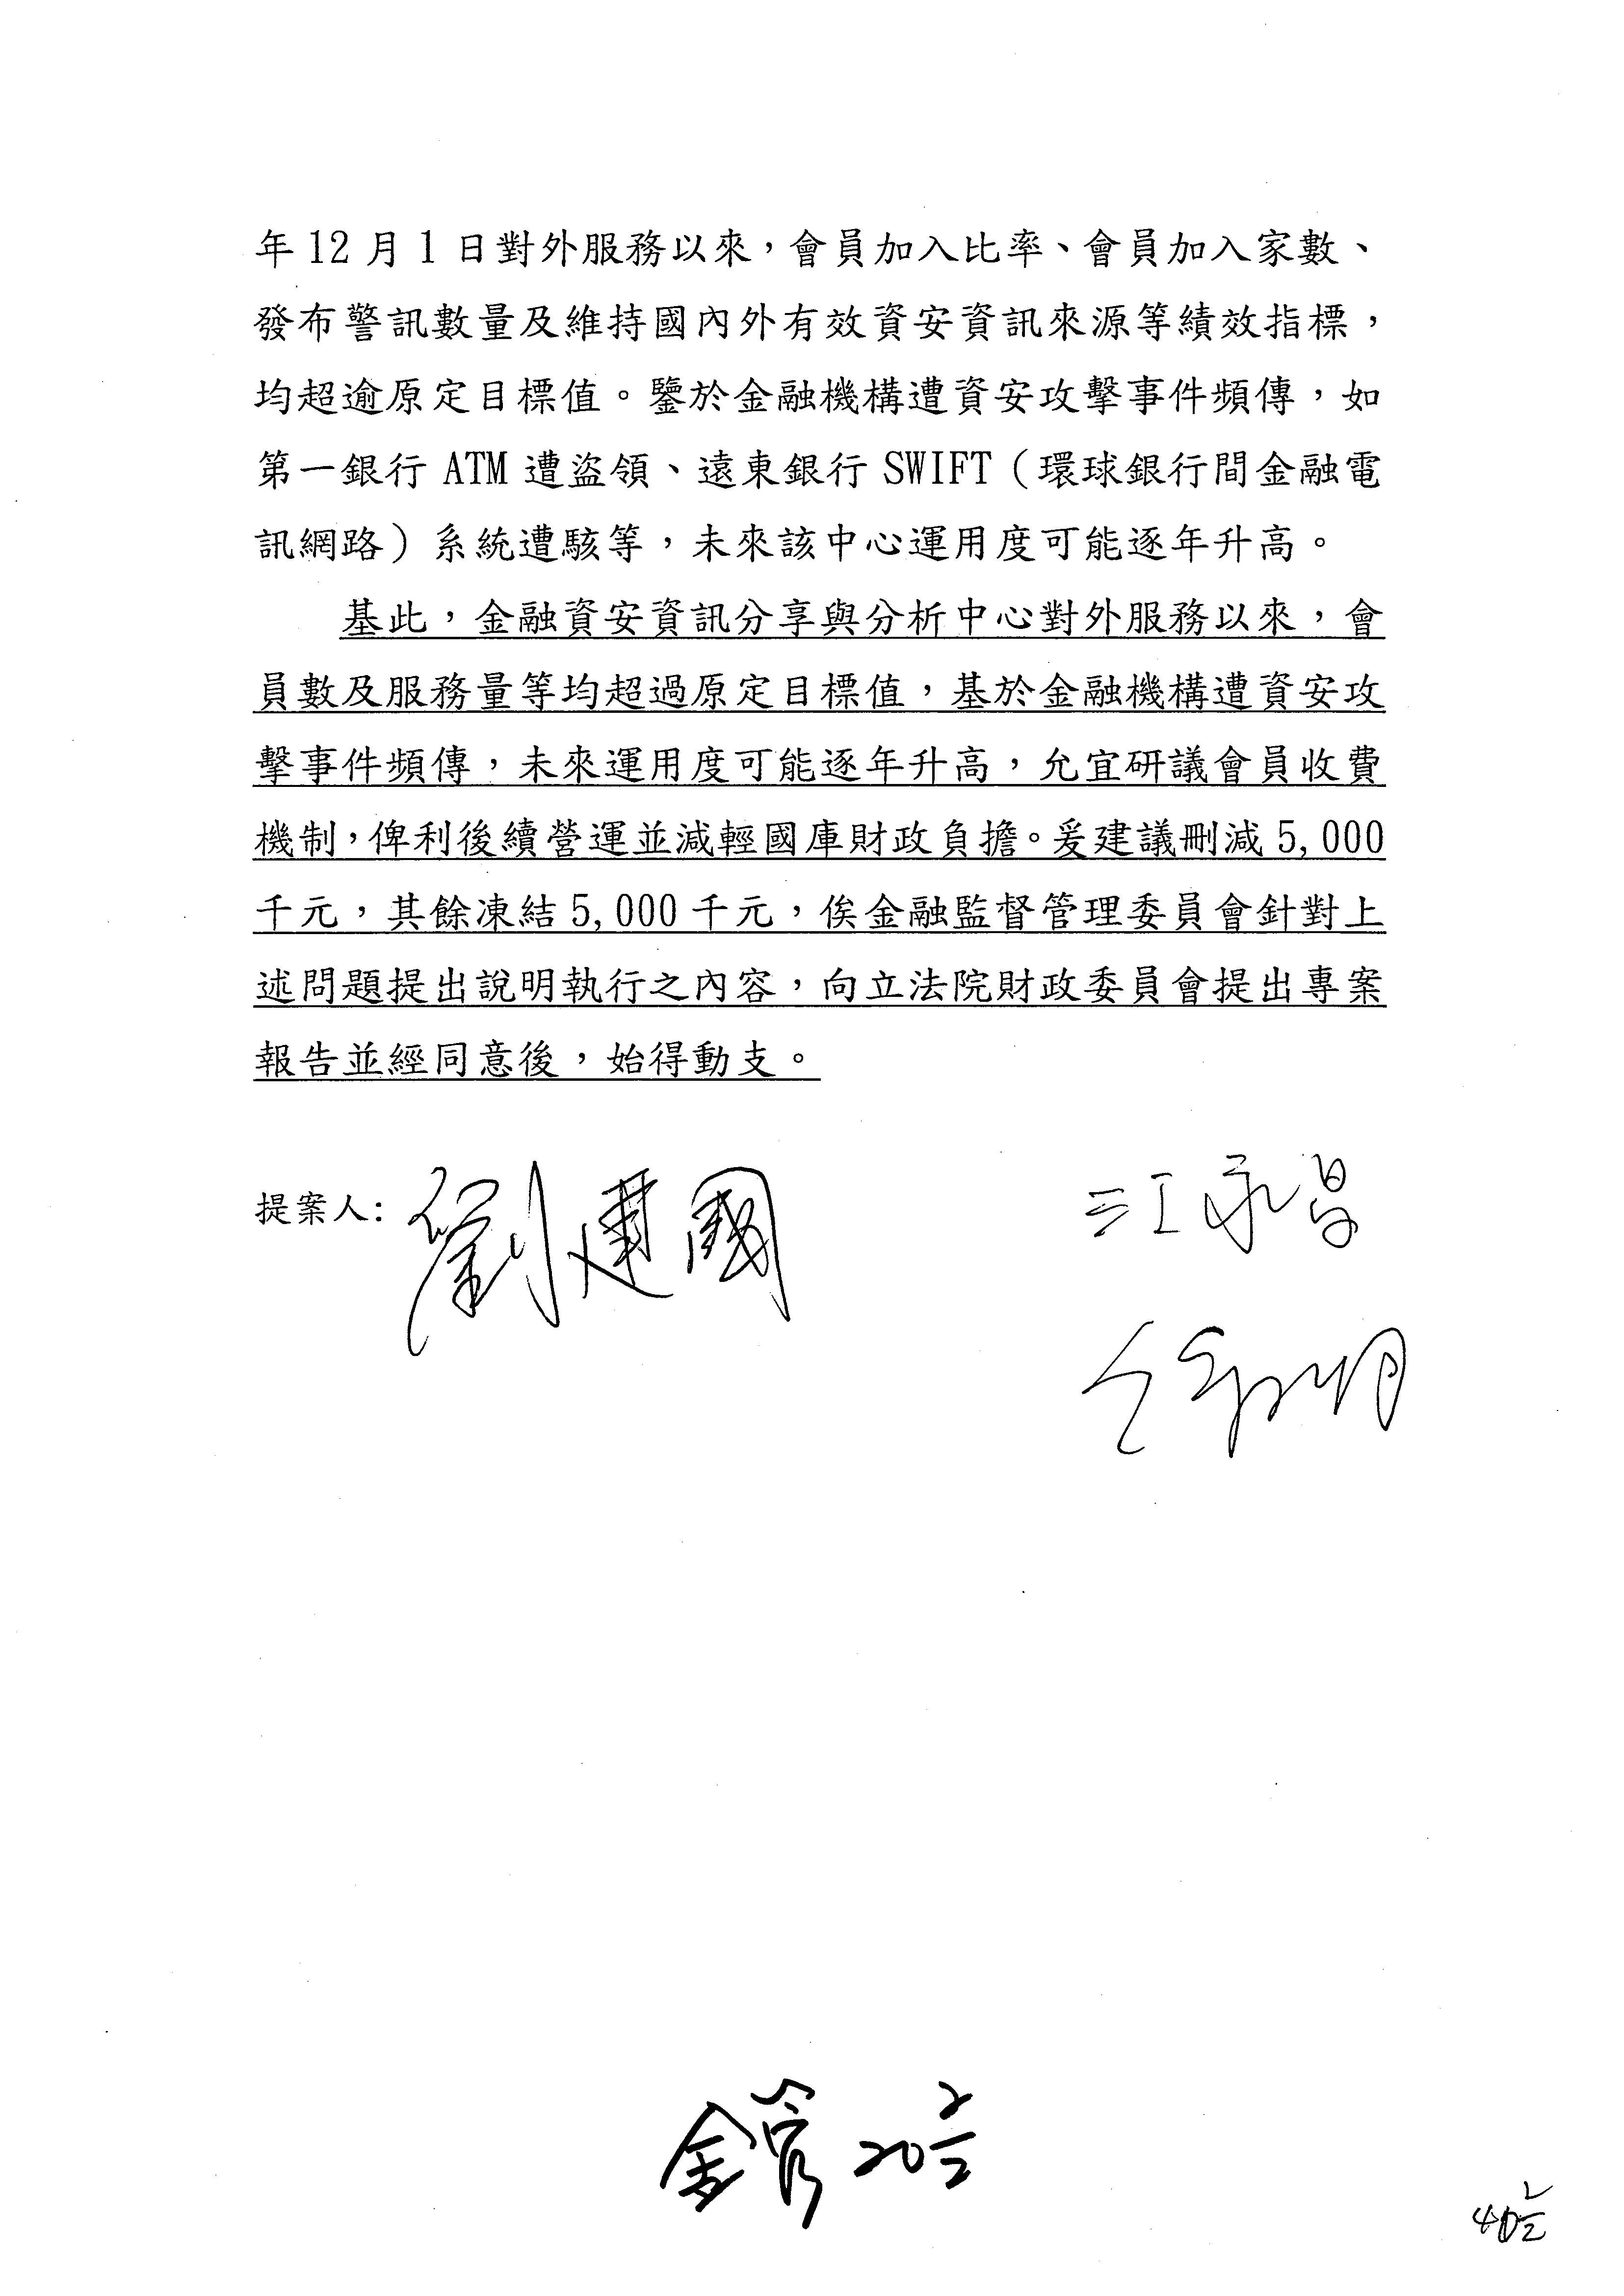 年12月1日對外服務以來，會員加入比率、會員加入家數、
發布警訊數量及維持國內外有效資安資訊來源等績效指標，
均超逾原定目標值。鑒於金融機構遭資安攻擊事件頻傳，如
第一銀行 ATM 遭盜領、遠東銀行 SWIFT（環球銀行間金融電
訊網路）系統遭駭等，未來該中心運用度可能逐年升高。
基此，金融資安資訊分享與分析中心對外服務以來，會
員數及服務量等均超過原定目標值，基於金融機構遭資安攻
擊事件頻傳，未來運用度可能逐年升高，允宜研議會員收費
機制，俾利後續營運並減輕國庫財政負擔。爰建議刪減5,000
千元，其餘凍結5,000千元，俟金融監督管理委員會針對上
述問題提出說明執行之內容，向立法院財政委員會提出專案
報告並經同意後，始得動支。
提案人：劉建國 江永昌
金管 20 2/2
40 2/2